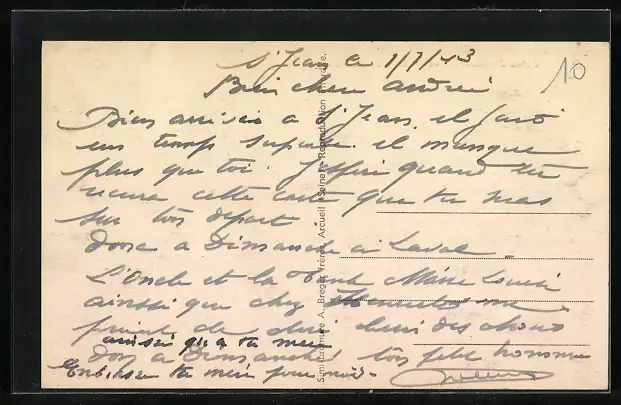 St Jean le 1/7/43
10
Bien chère andrée
Bien arrivée a St Jean. il fait
un temps superbe. il manque
plus que toi. J'espère quand tu
cette carte que tu
sur ton départ.
donc a Dimanche a Laval
L'oncle et la tante Marie Louise
ainssi que chez me
de chous
ainsi qu'a ta mere
donc a Dimanche. ton petit homme
Embrasse ta mère pour moi.
Simi-Bromure A. Breger frères, Arcueil (Seine). Reproduction interdite.